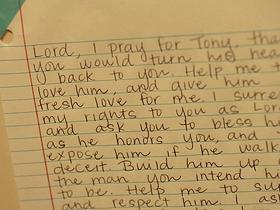 Lord, I pray for Tony, that
you would turn his heart
back to you. Help me to
love him, and give him
fresh love for me. I surren
my rights to you as Lord
and ask you to bless hi
as he honors you, and
expose him if he walk
deceit. Build him up
the man you intend hi
to be. Help me to su
and respect him. I as